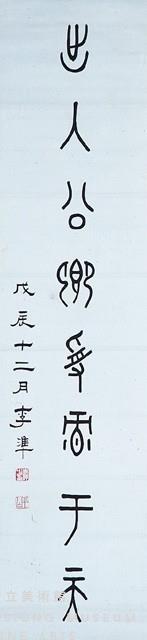 出入公卿受于天
戊辰十二月李準
立美術館
SIUNG MUSEUM
INE ARTS